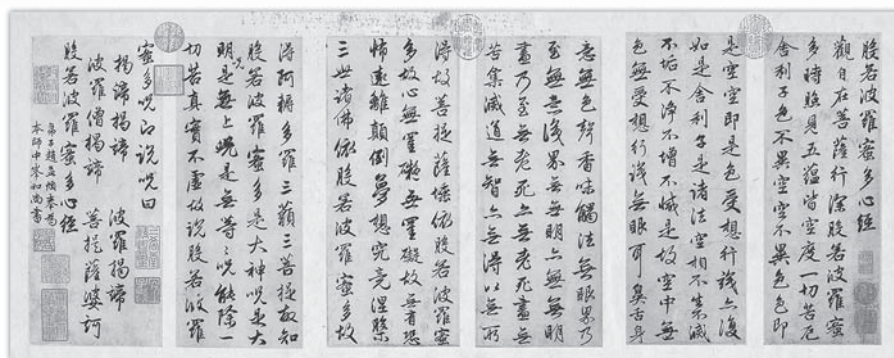 般若波羅蜜多心經
觀自在菩薩行深般若波羅蜜
多時照見五蘊皆空度一切苦厄
舍利子色不異空空不異色色即
是空空即是色受想行識亦復
如是舍利子是諸法空相不生滅
不垢不淨不增不減是故空中無
色無受想行識無眼耳鼻舌身
意無色聲香味觸法無眼界乃
至無識界無無明亦無無明
盡乃至無老死亦無老死盡無
苦集滅道無智亦無得以無所
得故菩提薩埵依般若波羅蜜
多故心無罣礙無罣礙故無有恐
怖遠離顛倒夢想究竟涅槃
三世諸佛依般若波羅蜜多故
得阿耨多羅三藐三菩提故知
般若波羅蜜多是大神咒是大
明咒是無上咒是無等〻咒能除一
切苦真實不虛故說般若波羅
蜜多咒即說咒曰
揭諦揭諦 波羅揭諦
波羅僧揭諦 菩提薩婆訶
般若波羅蜜多心經
弟子趙孟頫奉為
本師中峯和尚書